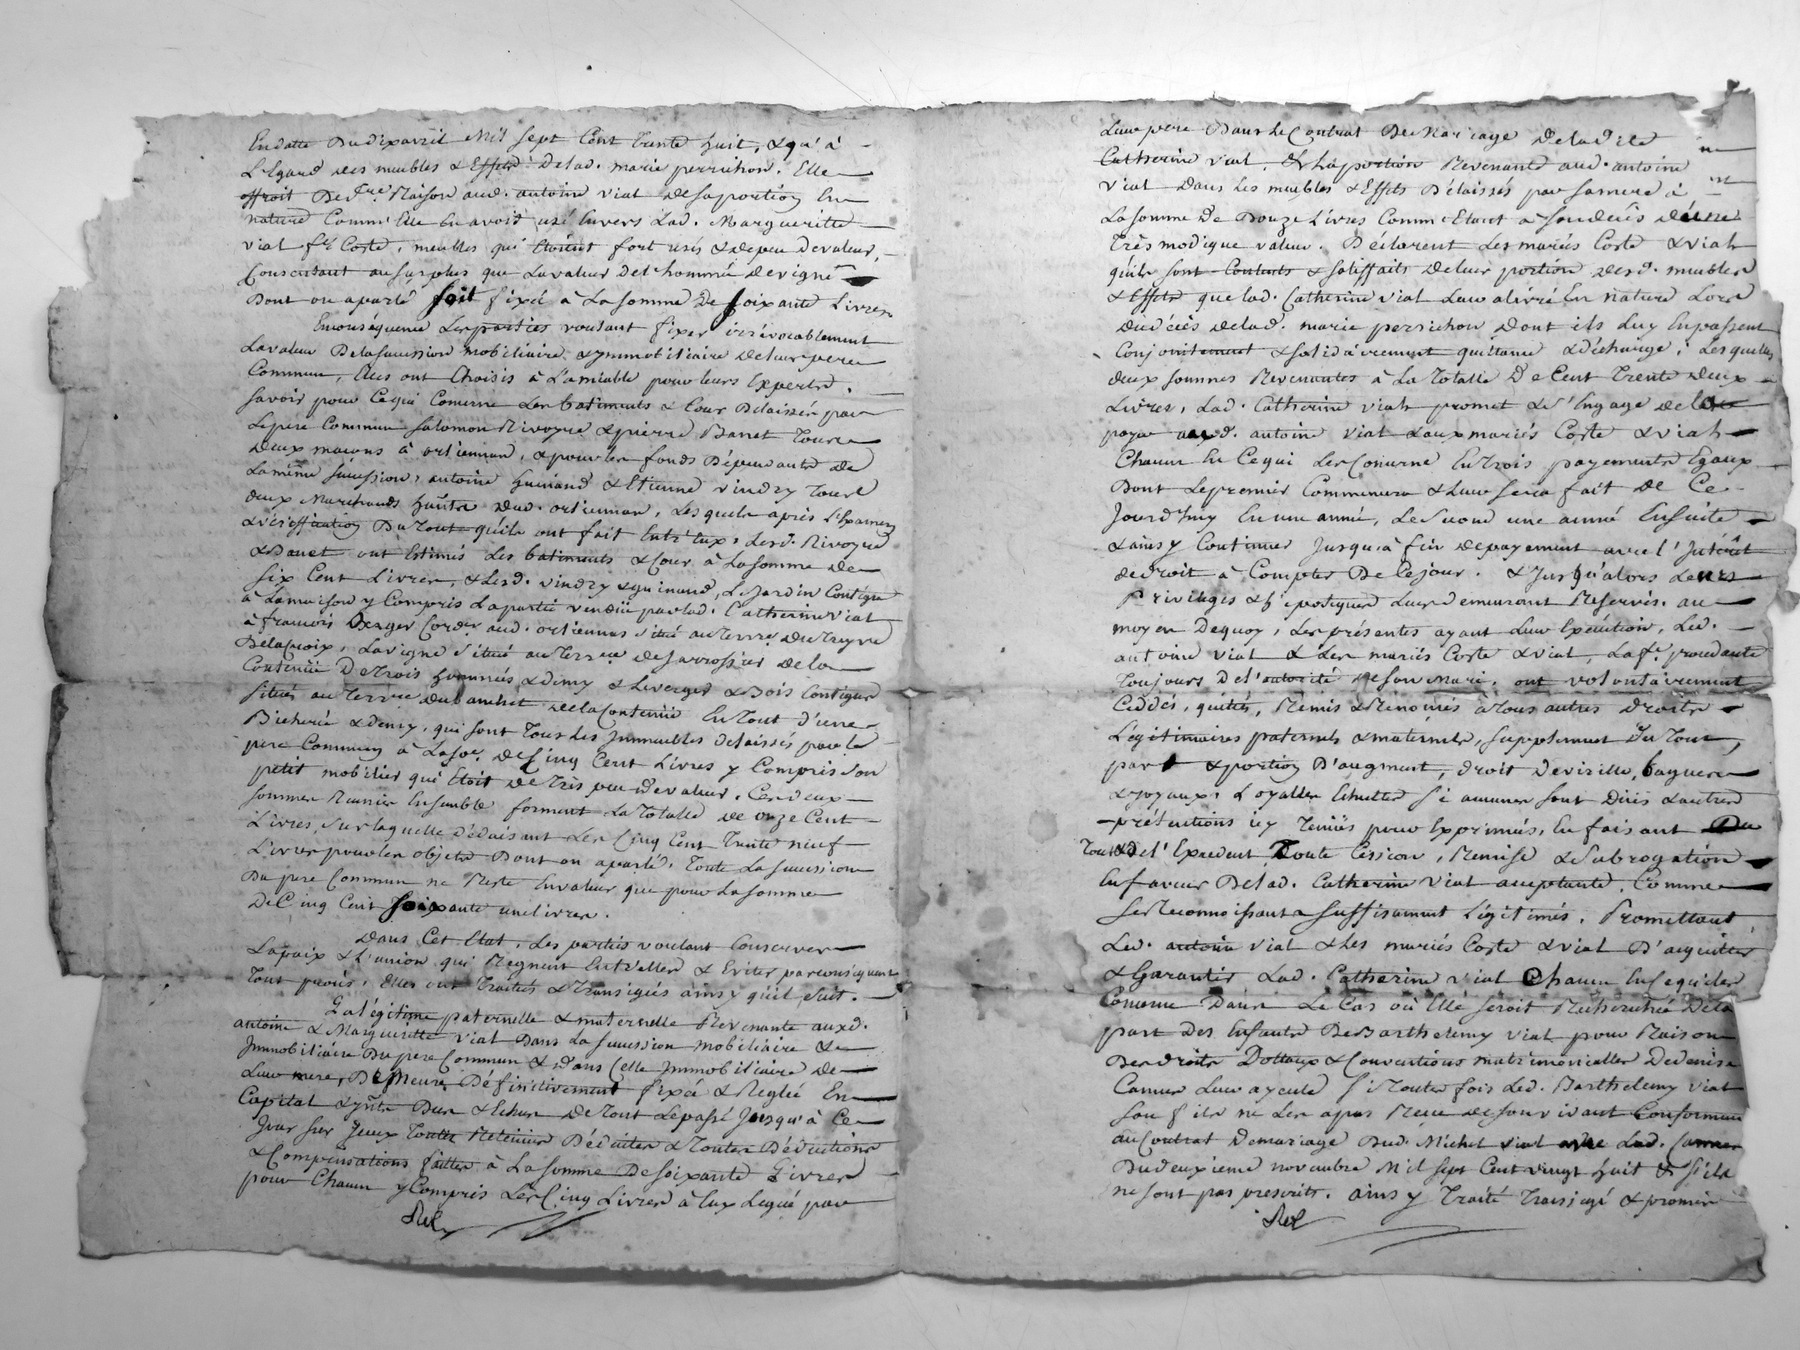 En datte Du dix avril Mil sept Cent trente huit, & qu'à
L'Egard des meubles & Effets delad. marie perrichon. Elle
offroit De d.te Raison aud. antoine viat desaportion En
nature Comm'Elle En avoit usé Envers Lad. Margueritte
viat f.e Coste, meubles qui Etoient fort usés & depeu devaleur,
Consentant au surplus que Lavaleur del'hommée devigne
Dont on aparlé soit fixée à La somme De soixante Livres
Enconséquence Les parties voulant fixer irrévocablement
Lavaleur Delasuccession mobiliaire & ymmobiliaire deleur pere
Commun, Elles ont Choisis à L'amiable pour leurs Experts.
savoir pour Cequi Concerne Les batiments & Cour Délaissés par
Lepere Commun salomon Rivoyre & pierre Banet Tous
deux maçons à orliennas, & pour les fonds Dépendants de
Lamême succession, antoine guinand & Etienne vindry Tous
deux Marchands hants dud. orliennas, Lesquels après L'Examen
& vériffication Du Tout qu'ils ont fait Entr'Eux, Lesd. Rivoyre
& Banet ont Estimés Les batiments & Cour à Lasomme de
six Cent Livres, & Lesd. vindry & guinand, Le jardin Contigu
à Lamaison y Compris Lapartie vendüe parlad. Catherine viat
à francois Berger Cord.er aud. orliennas situé au Terre.
Delacroix, Lavigne située au Terr.re dejarrossier dela
Contenüe De trois hommées & demy & Leverger & Bois Contigus
situés au Terr.re dubanchet delaContenüe EnTout d'une
Bicherée & demy, qui sont Tous Les Immeubles délaissés par le
pere Commun à Lasoe. deCinq Cent Livres y Compris son
petit mobilier qui Etoit de Très peu devaleur. Ces deux
sommes Réunies Ensemble forment La Totalle de onze Cent
Livres, sur laquelle déduisant Les Cinq Cent Trente neuf
Livres pour les objets Dont on aparlé, Toute La succession
Du pere Commun ne Reste Envaleur que pour Lasomme
DeCinq Cent soixante une livres.
Dans Cet Etat, Les parties voulant Conserver
Lapaix & L'union qui Regnent Entr'elles & Eviter parconséquent
Tout procès, Elles ont Traités & Transigés ainsy qu'il suit.
La légitime paternelle & maternelle Revenante auxd.
antoine & Margueritte viat Dans La succession mobiliaire &
Immobiliaire Du pere Commun & dans Celle Immobiliaire de
Leur mere, Demeure Définitivement fixée & Reglée En
Capital & ynts Dus & Echus de Tout Lepassé Jusqu'à Ce
Jour sur Iceux Toutte Retenues Déduittes & Toutes Déductions
& Compensations faittes à La somme De soixante Livres
pour Chacun y Compris Les Cinq Livres à Eux Legué par
Leur pere Dans le Contrat De Mariage deladite
Catherine viat. Et laportion Revenante aud. antoine
viat dans Les meubles & Effets Délaissés par samere à
Lasomme De Douze Livres Comm'Etant
Très modique valeur. Déclarent Les mariés Coste & viat
qu'ils sont Contents & satisffaits deleur portion desd. meubles
& Effets que lad. Catherine viat Leur alivré En nature Lors
dudécès delad. marie perrichon dont ils Luy Enpassent
Conjointement & solidairement quittance & décharge. Lesquelles
deux sommes Revenantes à La Totalle De Cent Trente deux
Livres, Lad. Catherine viat promet & s'Engage dela
payer aud. antoine viat & aux mariés Coste & viat
Chacun En Cequi Les Concerne En trois payements Egaux
Dont Lepremier Commencera & Leur sera fait de Ce
Jourd'huy En une année, Le second une année Ensuite
& ainsy Continuer Jusqu'à fin depayement avec l'Intérêt
de droit à Compter De Cejour. & Jusqu'alors Leurs
Privileges & hipoteques Leur demeurant Reservés. au
moyen Dequoy, Les présentes ayant Leur Exécution, Led.
antoine viat & Les mariés Coste & viat, La f.e procédante
Toujours De l'autorité deson mari, ont volontairement
Ceddés, quittés, Remis & Renoncés à Tous autres droits
Légitimaires paternels & maternels, supplement Du Tour,
part & portion D'augment, droit devirille, bagues
& Joyaux, Loyalles Echuttes si aucunes sont Düës & autres
prétentions icy Tenües pour Exprimées, En faisant Du
Tout & del'Excedent Toute Cession, Remise & subrogation
Enfaveur Delad. Catherine viat acceptante, Comme
se Reconnoissants suffisament Légitimés. Promettant
Led. antoine viat & Les mariés Coste & viat D'acquitter
& Garantir Lad. Catherine viat Chacun EnCequiles
Concerne Dans Le Cas où Elle seroit Recherchée Dela
part Des Enfants De Barthelemy viat pour Raison
Des droits Dottaux & Conventions matrimonialles De denise
Camus Leur ayeule si Toutes fois Led. Barthelemy viat
son fils ne Les apas Recu de son vivant Conforment
au Contrat demariage Dud. Michel viat avec Lad. Camus
Du deuxieme novembre Mil sept Cent vingt huit & s'ils
ne sont pas prescrits. ainsy Traité Transigé & promis